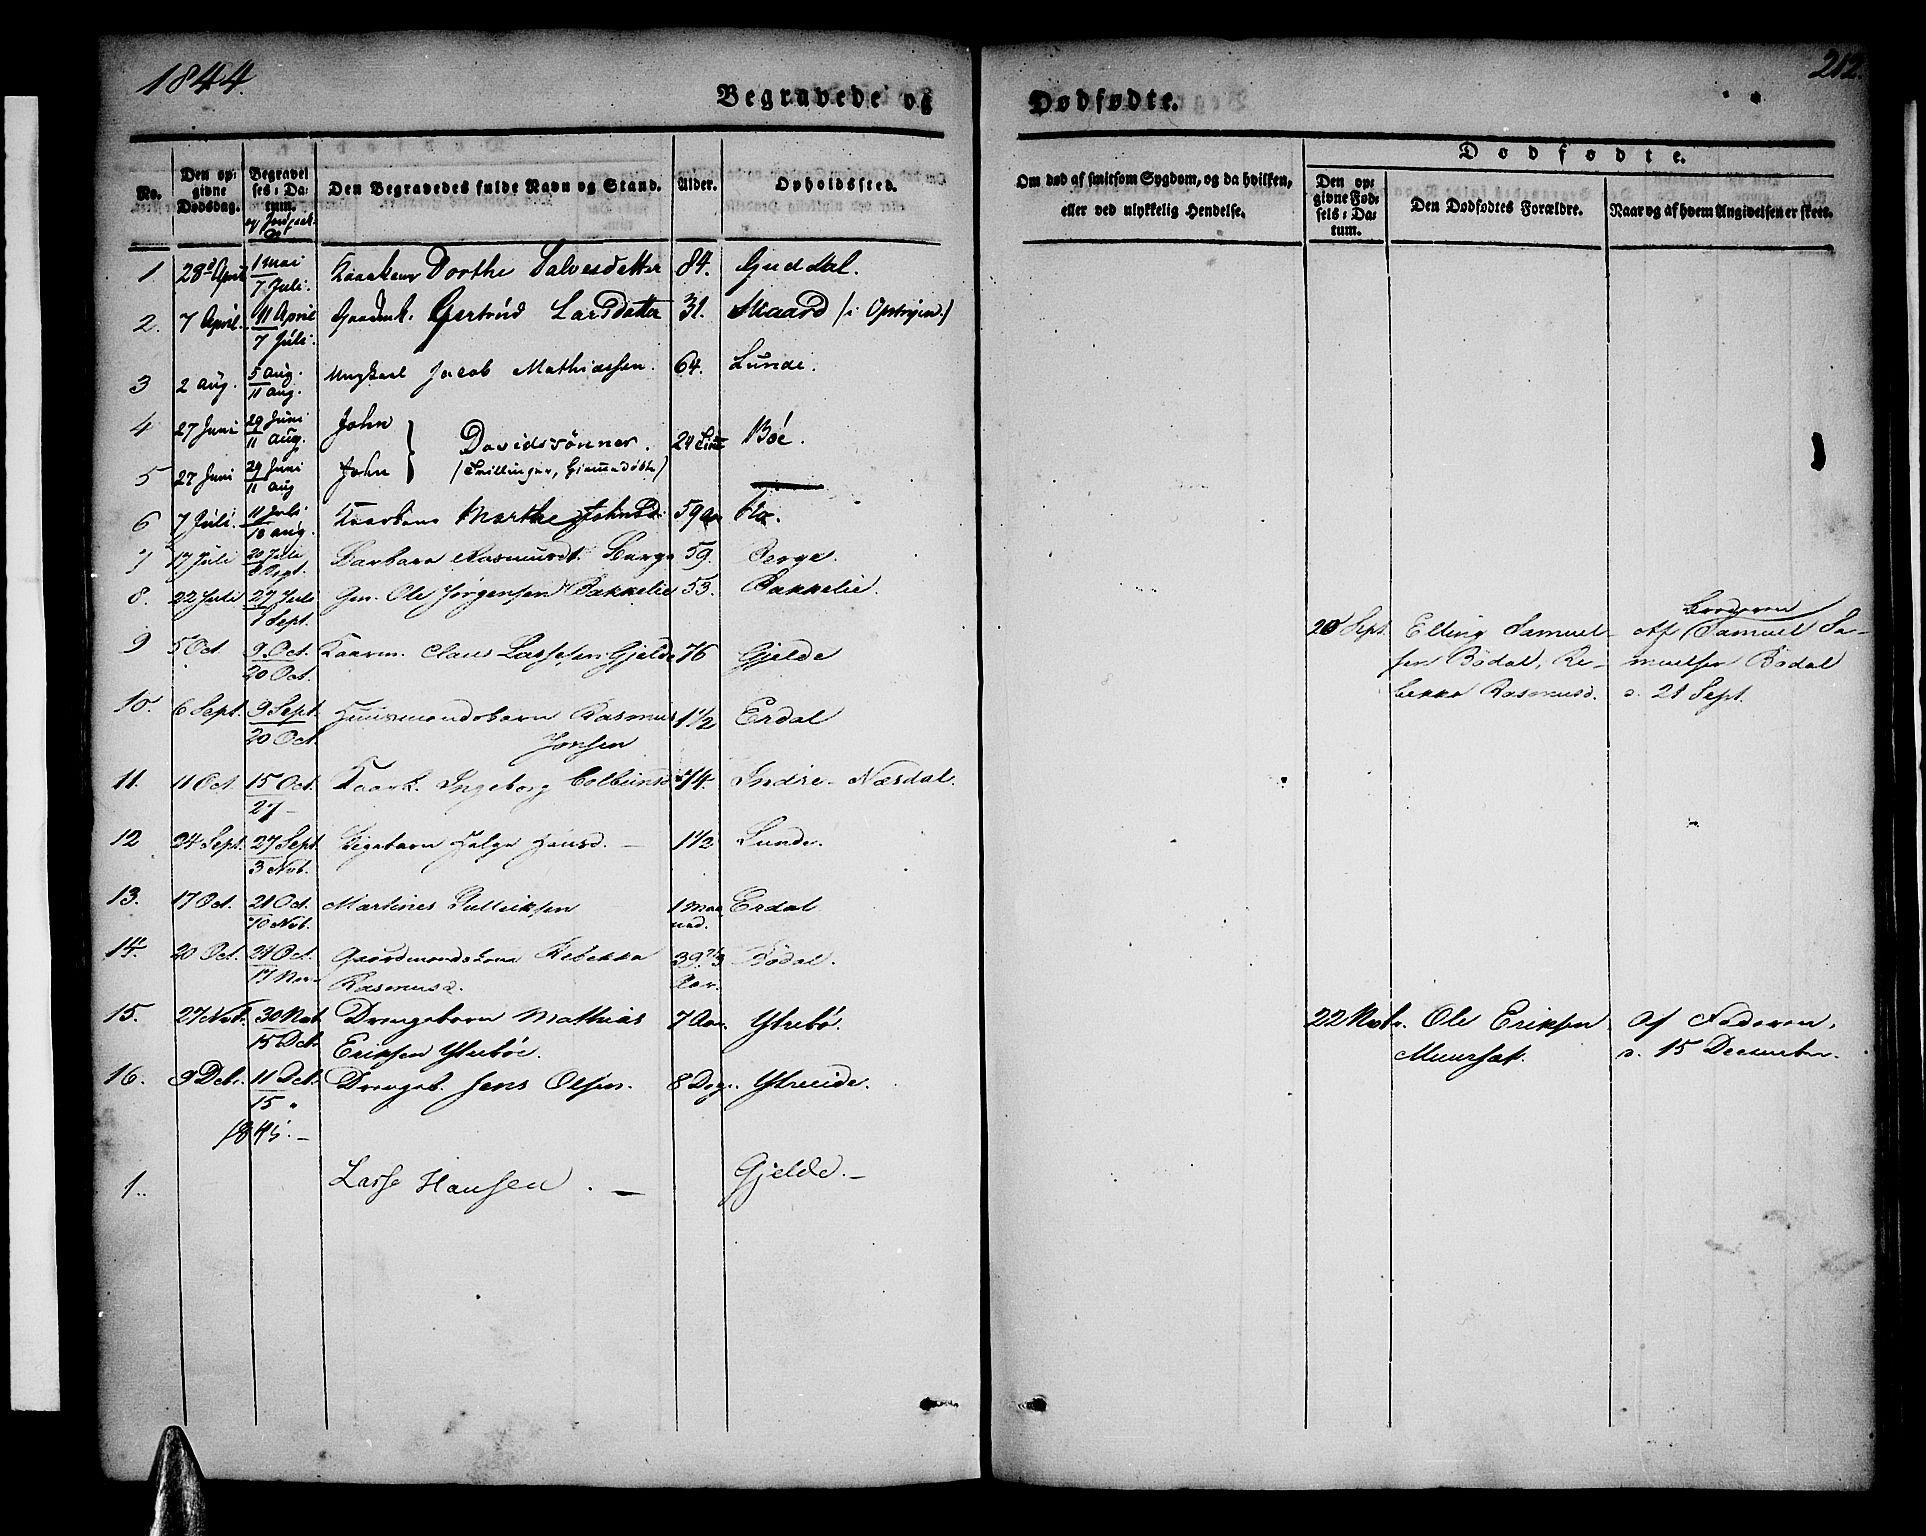 1844.
212.
Begravede og Dødfødte.
No.
Den opgivne Dødsdag.
Begravelses-Datum.
Den Begravedes fulde Navn og Stand.
Alder.
Opholdssted.
Om død af smitsom Sygdom, og da hvilken,
eller ved ulykkelig Hendelse.
Dødfødte.
Den opgivne Fødsels-Datum.
Den Dødfødtes Forældre.
Naar og af hvem Angivelsen er skeet.
1 28 April 1 Mai / 7 Juli. Dorthe Salvesdatter 84. Guddal.
2. 7 April. 11 April / 7 Juli. Gertrud Larsdatter 31. Skaard (i Opstryn.)
3 2 Aug. 5 Aug. / 11 Aug. Ungkarl Jacob Mathiassen. 64. Lunde.
4 27 Juni 29 Juni / 11 Aug. John
} Davidsønner. 24 Bøe.
5 27 Juni 29 Juni / 11 Aug John (Tvillinger, Hjemmedøbte)
6 7 Juli. 11 Juli / 18 Aug. Marthe Johnsd. 59 Aar
7 17 Juli 20 Juli / Sept. Barbara Rasmusd. Berge 59. Berge.
8. 22 Juli 27 Juli / 1 Sept. Ole Jørgensen Bakkelie 53. Bakkelie.
9 5 Oct 9 Oct. / 20 Oct. Kaarm. Claus Lassesen Gjelde 76 Gjelde
10. 6 Sept. 9 Sept. / 20 Oct. Huusmandsbarn Rasmus 1 1/2 Erdal
Jonsen
11. 11 Oct 15 Oct. / 27 – Kaark. Ingeborg Colbeinsd 74. Indre-Næsdal.
12 24 Sept. 27 Sept. / 3 Nvb. Pigebarn Helge Hansd. – 1 1/2 Lunde.
13. 17 Oct. 21 Oct. / 10 Nvb. Martines 1 Maaned. Erdal
14. 20 Oct. 24 Oct. / 17 Nov. Gaardmandskone Rebekka 39 Bødal.
Rasmusd. Aar.
15. 27 Nvb. 30 Nvb. / 15 Dcb. Drengebarn Mathias 7 Aar. Ytrebø.
Eriksen Ytrebøe.
16. 9 Dcb. 11 Dcb. / 15 " Drengeb. Jens Olsen. 8 Dage. Ytreeide.
1845. –
1. Lasse Hansen. – Gjelde. –
20 Sept. Elling Samuelsen Bødal, Rebekka Rasmusd. Af Broderen Samuel Samuelsen Bødal
d. 21 Sept.
22 Nvbr. Ole Eriksen Af Faderen,
d. 15 December.